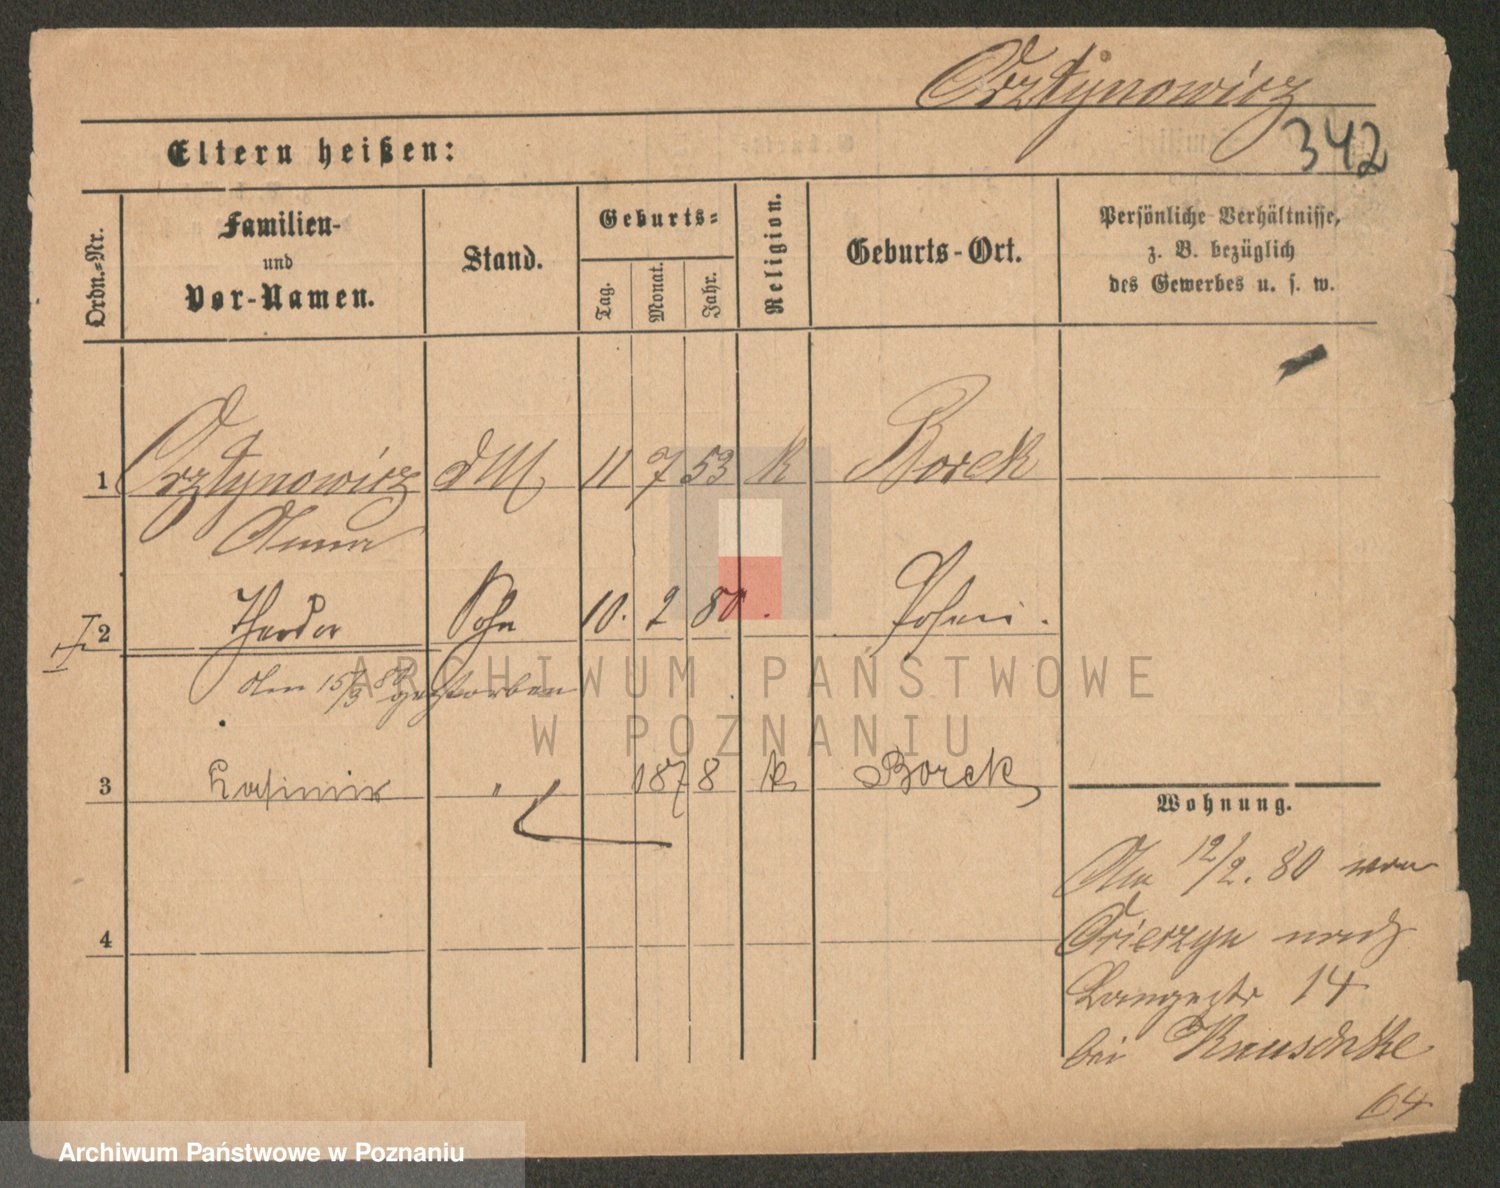 Orztynowicz
342
Eltern heißen:
Ordn.=Nr.
Familien-
und
Vor-Namen.
Stand.
Geburts=
Tag.
Monat.
Jahr.
Religion.
Geburts-Ort.
Persönliche Verhältnisse,
z. B. bezüglich
des Gewerbes u. s. w.
1 Orztynowicz dM 11 7 53 k Borek
Anna
2 Theodor Sohn 10. 2 80 Posen.
Am 15/3 80 gestorben
3 Casimir " 1878 k Borek
4
Wohnung.
Am 12/2. 80 von
nach
Langestr 14
bei Knuschke
64
ARCHIWUM PAŃSTWOWE
W POZNANIU
Archiwum Państwowe w Poznaniu